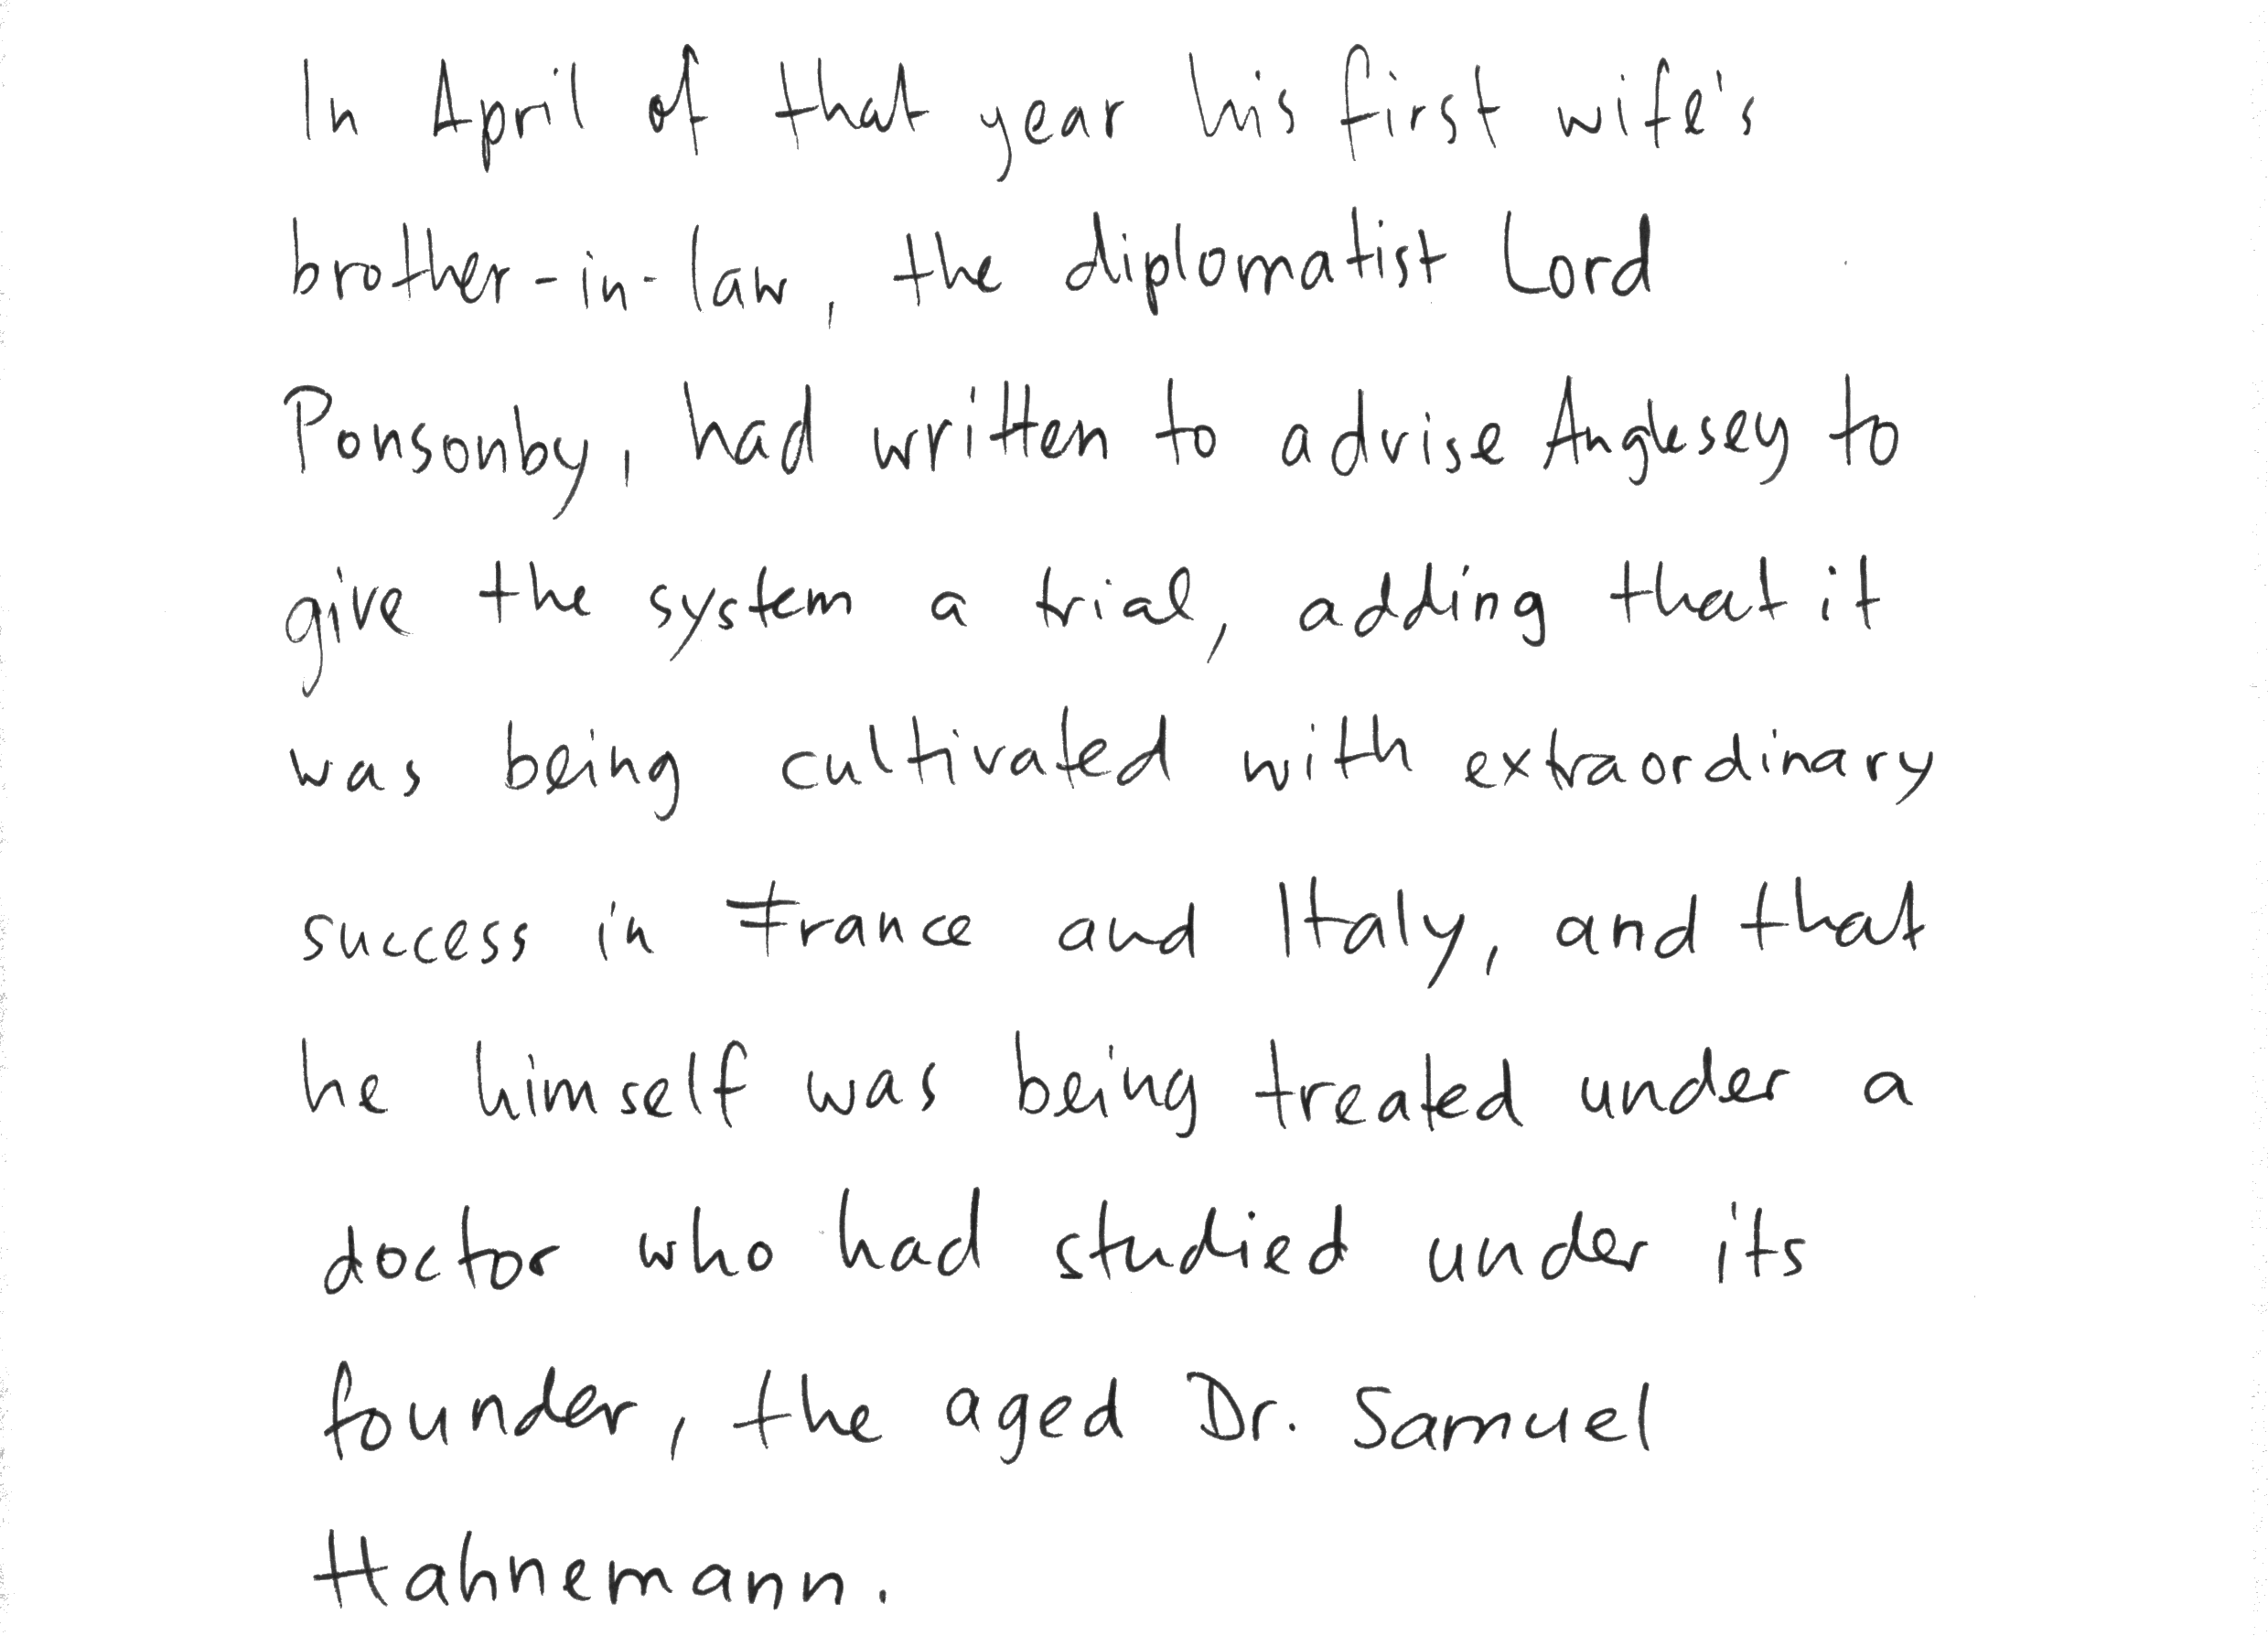 In April of that year his first wife's
brother-in-law, the diplomatist Lord
Ponsonby, had written to advise Anglesey to
give the system a trial, adding that it
was being cultivated with extraordinary
success in France and Italy, and that
he himself was being treated under a
doctor who had studied under its
founder, the aged Dr. Samuel
Hahnemann.